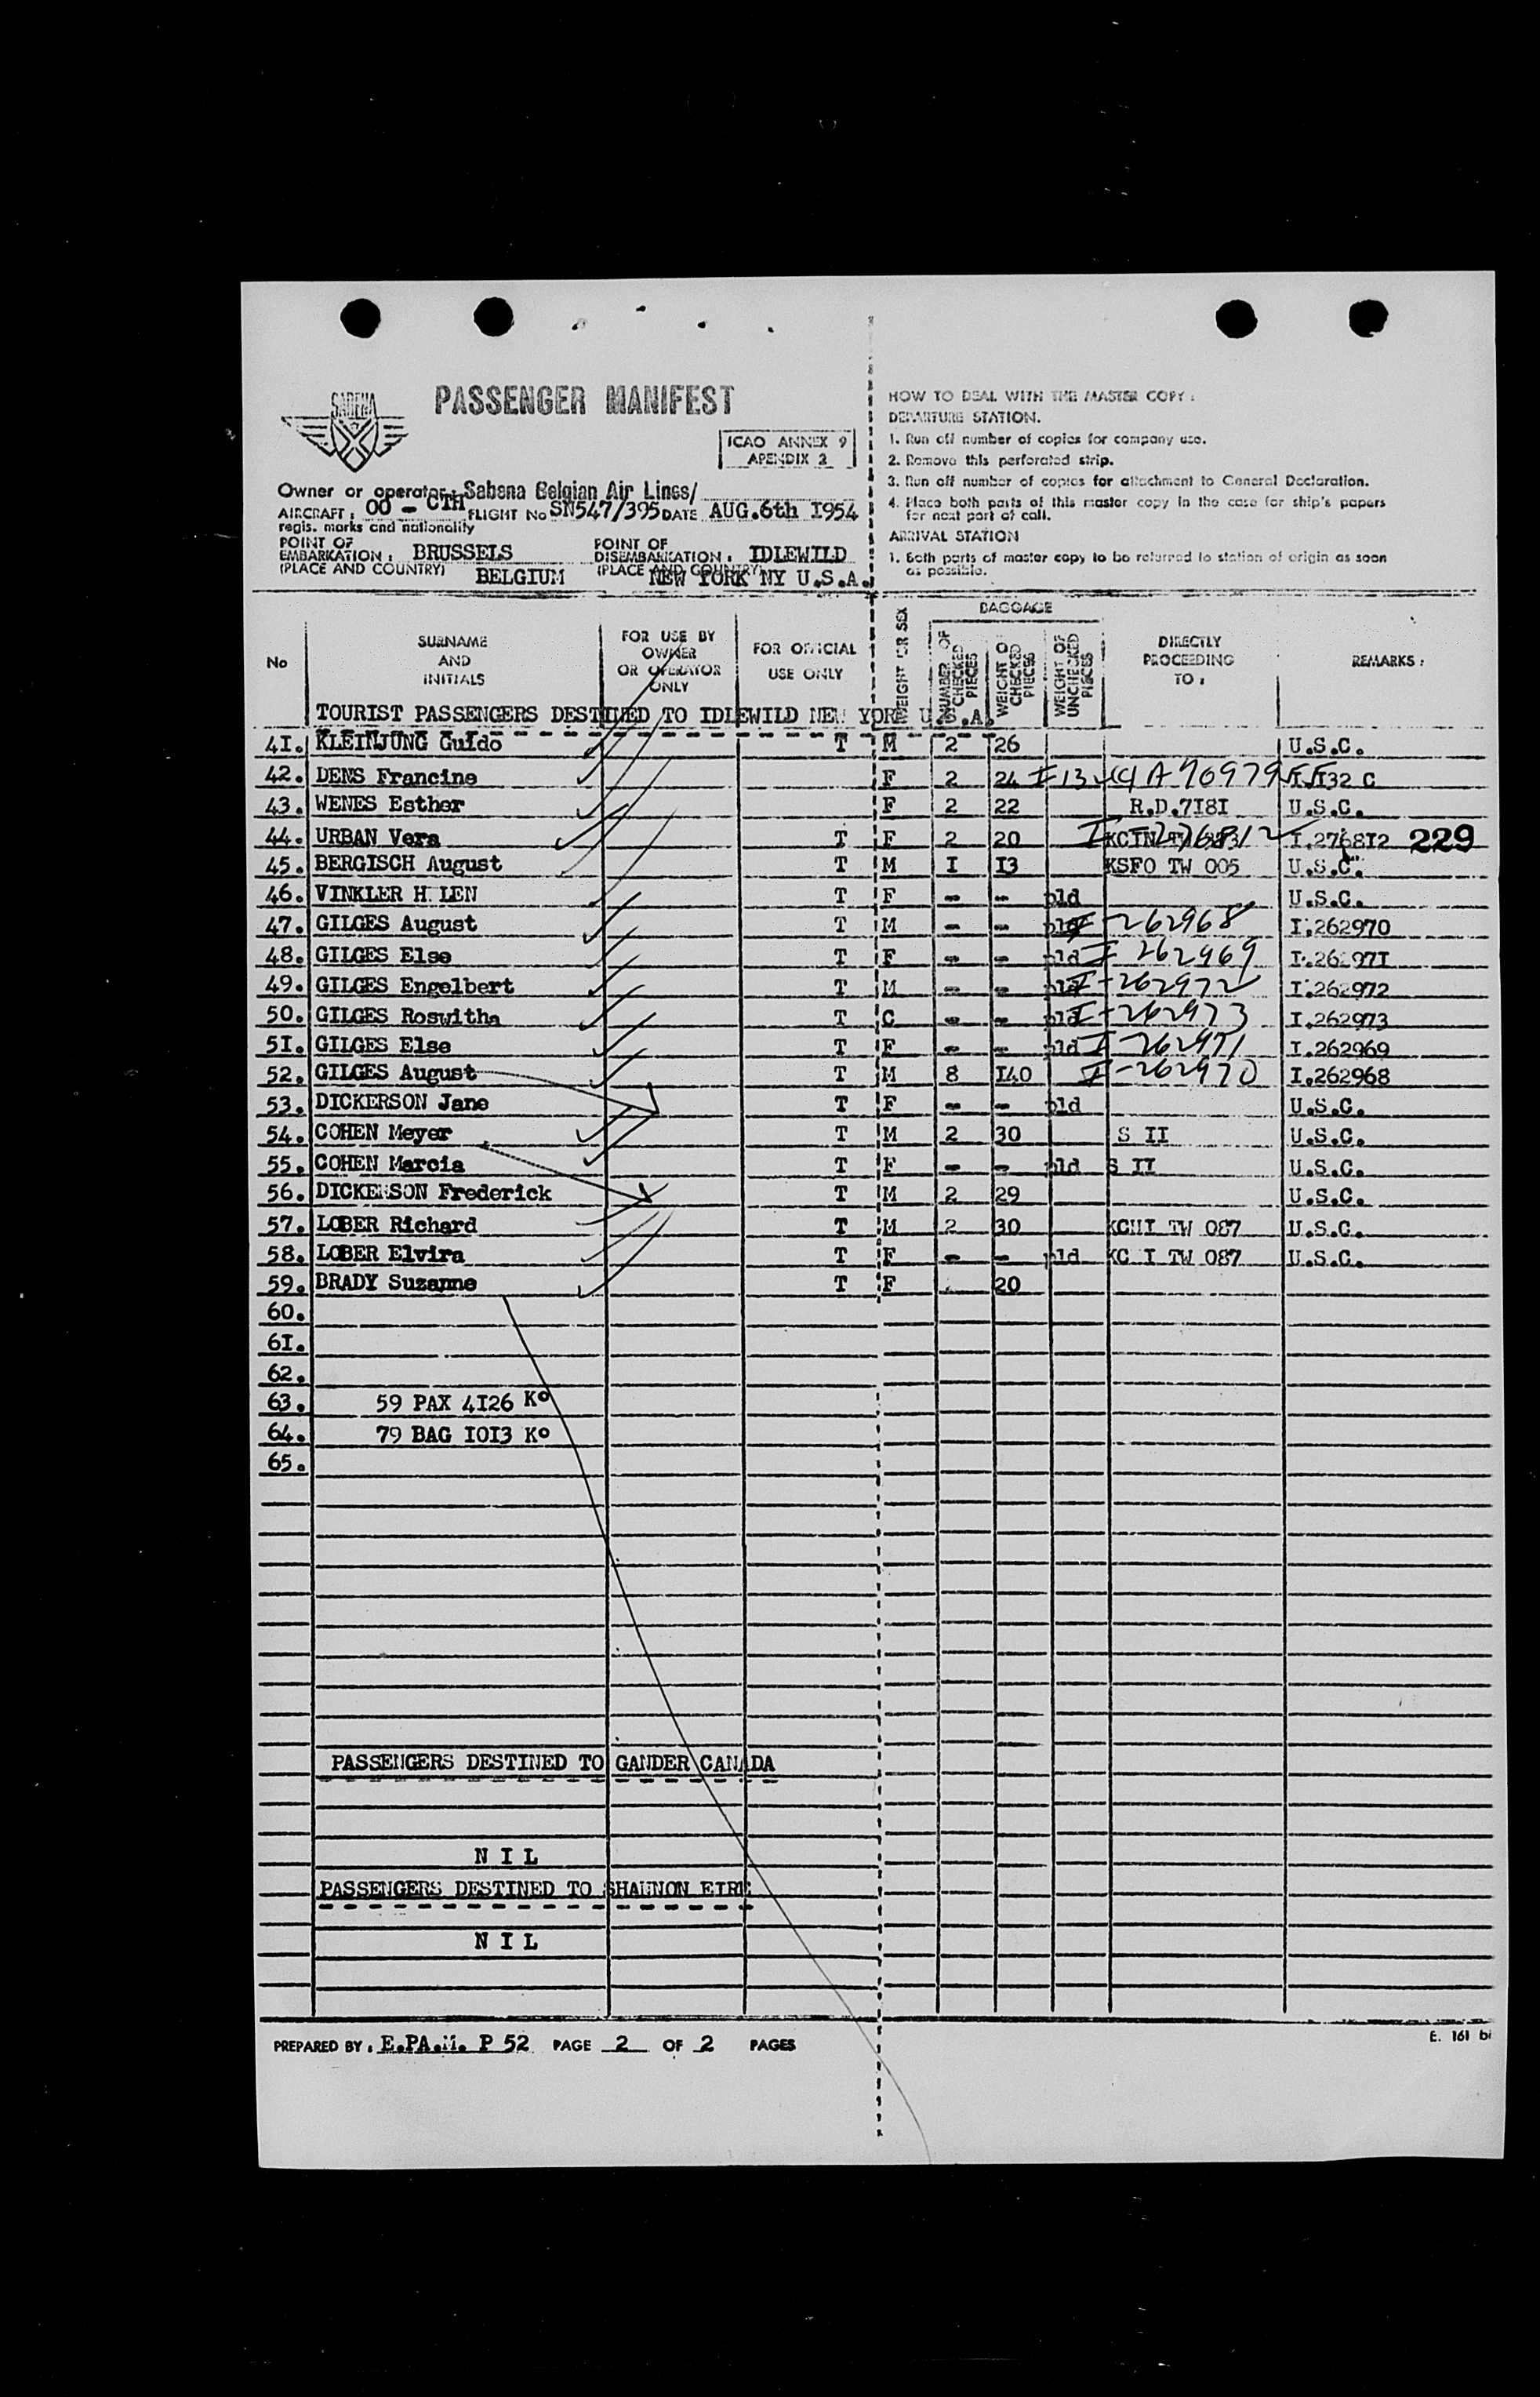 SABENA
PASSENGER MANIFEST
ICAO ANNEX 9
APENDIX 2
Owner or operator : Sabena Belgian Air Lines/
AIRCRAFT : OO - CTH FLIGHT No SN547/395 DATE AUG.6th I954
regis. marks and nationality
POINT OF EMBARKATION : BRUSSELS POINT OF DISEMBARKATION : IDLEWILD
(PLACE AND COUNTRY) BELGIUM (PLACE AND COUNTRY) NEW YORK NY U.S.A.
HOW TO DEAL WITH THE MASTER COPY :
DEPARTURE STATION.
1. Run off number of copies for company use.
2. Remove this perforated strip.
3. Run off number of copies for attachment to General Declaration.
4. Place both parts of this master copy in the case for ship's papers
for next port of call.
ARRIVAL STATION
1. Both parts of master copy to be returned to station of origin as soon
as possible.
No
SURNAME AND INITIALS
FOR USE BY OWNER OR OPERATOR ONLY
FOR OFFICIAL USE ONLY
WEIGHT OR SEX
BAGGAGE
NUMBER OF CHECKED PIECES
WEIGHT OF CHECKED PIECES
WEIGHT OF UNCHECKED PIECES
DIRECTLY PROCEEDING TO :
REMARKS :
TOURIST PASSENGERS DESTINED TO IDLEWILD NEW YORK U.S.A.
4I. KLEINJUNG Guido T M 2 26 U.S.C.
42. DENS Francine F 2 24 A90979 I.I32 C
43. WENES Esther F 2 22 R.D.7I8I U.S.C.
44. URBAN Vera T F 2 20 I-276812 I.2768I2 229
45. BERGISCH August T M I I3 KSFO TW 005 U.S.C.
46. VINKLER H LEN T F - - pld U.S.C.
47. GILGES August T M - - pld I-262968 I.262970
48. GILGES Else T F - - pld I 262969 I.26 97I
49. GILGES Engelbert T M - - pld I-262972 I.262972
50. GILGES Roswitha T C - - pld I-262973 I.262973
5I. GILGES Else T F - - pld I-262971 I.262969
52. GILGES August T M 8 I40 I-262970 I.262968
53. DICKERSON Jane T F - - pld U.S.C.
54. COHEN Meyer T M 2 30 S II U.S.C.
55. COHEN Marcia T F - - pld S II U.S.C.
56. DICKERSON Frederick T M 2 29 U.S.C.
57. LOBER Richard T M 2 30 KCHI TW 087 U.S.C.
58. LOBER Elvira T F - - pld KC I TW 087 U.S.C.
59. BRADY Suzanne T F 20
60.
6I.
62.
63. 59 PAX 4I26 Ko
64. 79 BAG I0I3 Ko
65.
PASSENGERS DESTINED TO GANDER CANADA
N I L
PASSENGERS DESTINED TO SHANNON EIRE
N I L
PREPARED BY : E.PA.M. P 52 PAGE 2 OF 2 PAGES
E. 161 bi